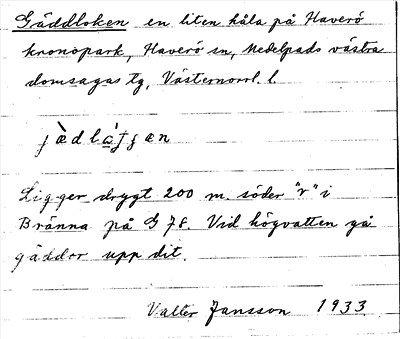 Gäddloken en liten håla på Haverö
kronopark, Haverö sn, Medelpads västra
domsagas tg, Västernorrl. l.
Ligger drygt 200 m. söder "r" i
Bränna på G 78. Vid högvatten gå
gäddor upp dit.
Valter Jansson 1933